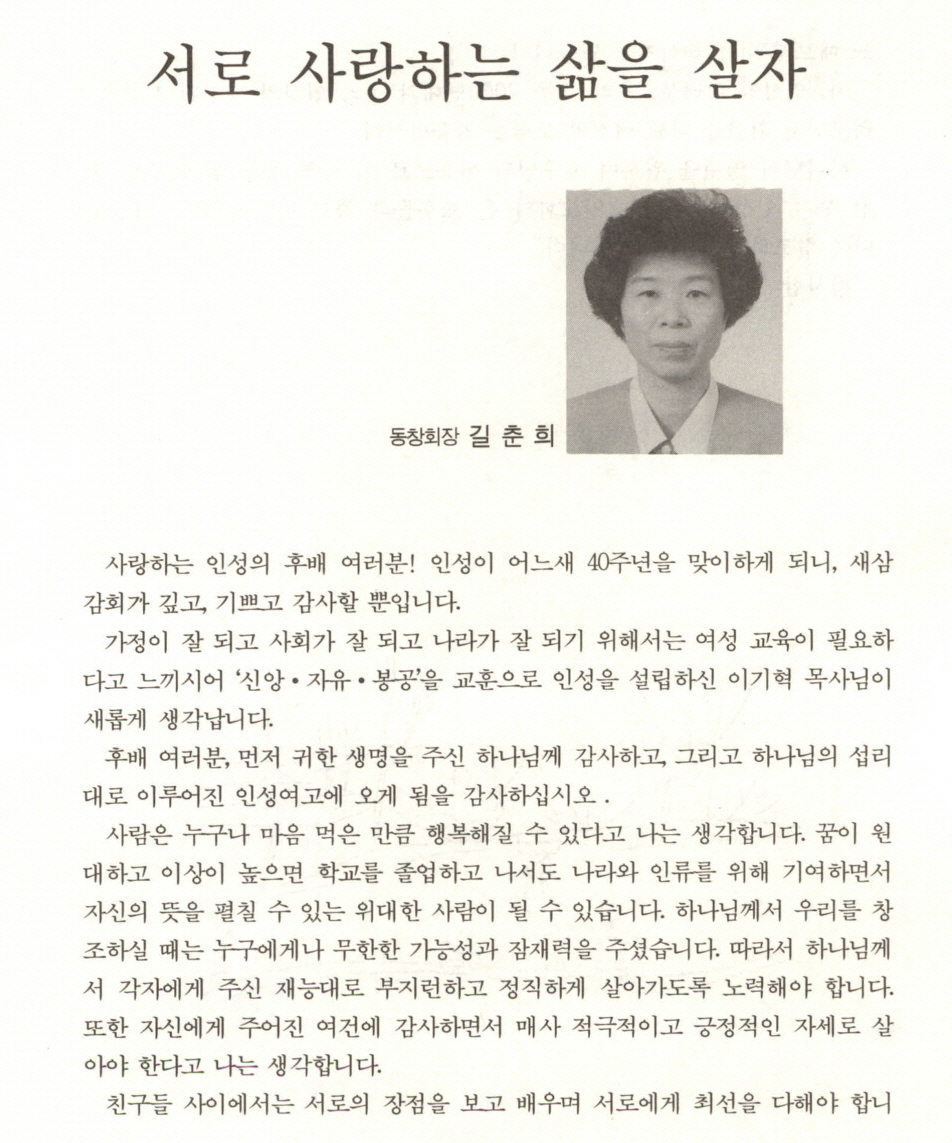 서로 사랑하는 삶을 살자
동창회장 길 춘 희
사랑하는 인성의 후배 여러분! 인성이 어느새 40주년을 맞이하게 되니, 새삼
감회가 깊고, 기쁘고 감사할 뿐입니다.
가정이 잘 되고 사회가 잘 되고 나라가 잘 되기 위해서는 여성 교육이 필요하
다고 느끼시어 ‘신앙•자유•봉공’을 교훈으로 인성을 설립하신 이기혁 목사님이
새롭게 생각납니다.
후배 여러분, 먼저 귀한 생명을 주신 하나님께 감사하고, 그리고 하나님의 섭리
대로 이루어진 인성여고에 오게 됨을 감사하십시오 .
사람은 누구나 마음 먹은 만큼 행복해질 수 있다고 나는 생각합니다. 꿈이 원
대하고 이상이 높으면 학교를 졸업하고 나서도 나라와 인류를 위해 기여하면서
자신의 뜻을 펼칠 수 있는 위대한 사람이 될 수 있습니다. 하나님께서 우리를 창
조하실 때는 누구에게나 무한한 가능성과 잠재력을 주셨습니다. 따라서 하나님께
서 각자에게 주신 재능대로 부지런하고 정직하게 살아가도록 노력해야 합니다.
또한 자신에게 주어진 여건에 감사하면서 매사 적극적이고 긍정적인 자세로 살
아야 한다고 나는 생각합니다.
친구들 사이에서는 서로의 장점을 보고 배우며 서로에게 최선을 다해야 합니